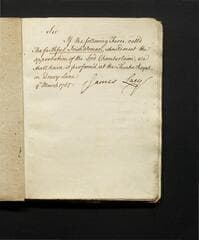 Sir
If the following Farce, called
The faithful Irishwoman, should meet the
approbation of the Lord Chamberlain, we
shall have it perform'd at the Theatre Royal
in Drury Lane
March 1765.
James Lacy